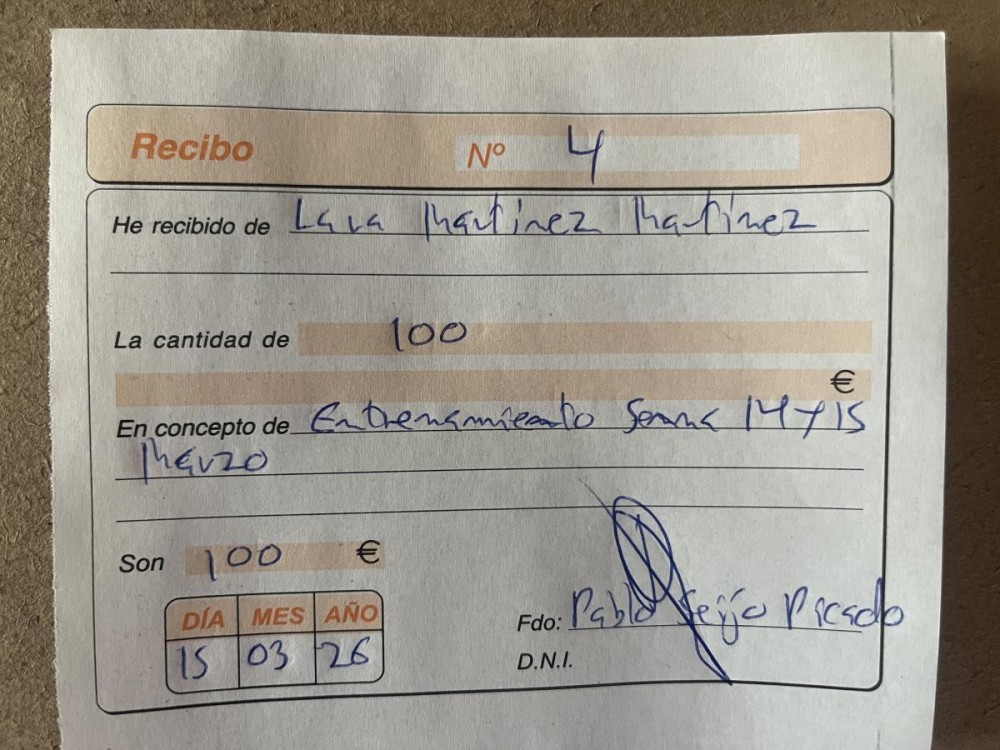 Recibo Nº 4
He recibido de Lara Martinez Martinez
La cantidad de 100
€
En concepto de Entrenamiento Semana 14 y 15
Marzo
Son 100 €
DÍA MES AÑO
15 03 26
Fdo: Pablo Seijo Picado
D.N.I.